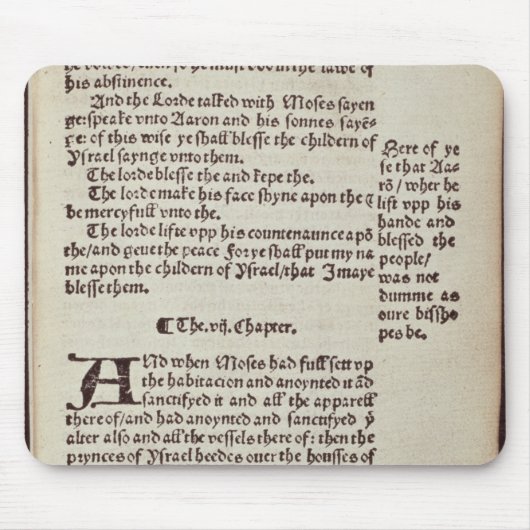 he vowed/even so he must doo in the lawe of
his abstinence.
And the Lorde talked with Moses sayen
ge: speake vnto Aaron and his sonnes sayẽ-
ge: of this wise ye shall blesse the childern of
Ysrael saynge vnto them.
The lorde blesse the and kepe the.
The lorde make his face shyne apon the &
be mercyfull vnto the.
The lorde lifte vpp his countenaunce apõ
the/and geue the peace For ye shall put my na
me apon the childern of Ysrael/that I maye
blesse them.
¶ The .vij. Chapter.
ANd when Moses had full sett vp
the habitacion and anoynted it ãd
sanctifyed it and all the apparell
there of/and had anoynted and sanctifyed yͤ
alter also and all the vessels there of: then the
prynces of Ysrael heedes ouer the housses of
Here of ye
se that Aa-
rõ/ wher he
lift vpp his
hande and
blessed the
people/
was not
dumme as
oure bissho
pes be.